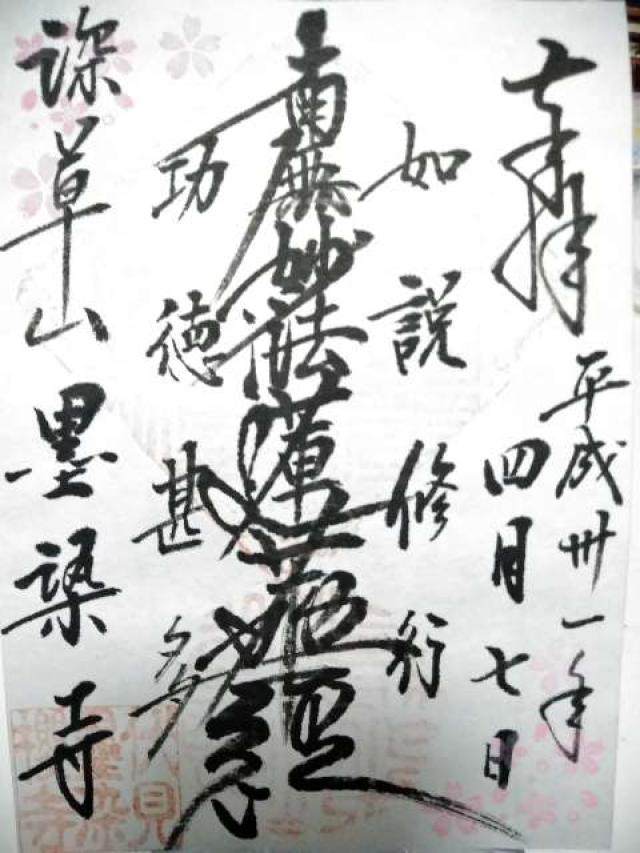 奉拝
平成卅一年
四月七日
如説修行
南無妙法蓮華經
功徳甚多
深草山墨染寺
伏見
墨染
櫻寺